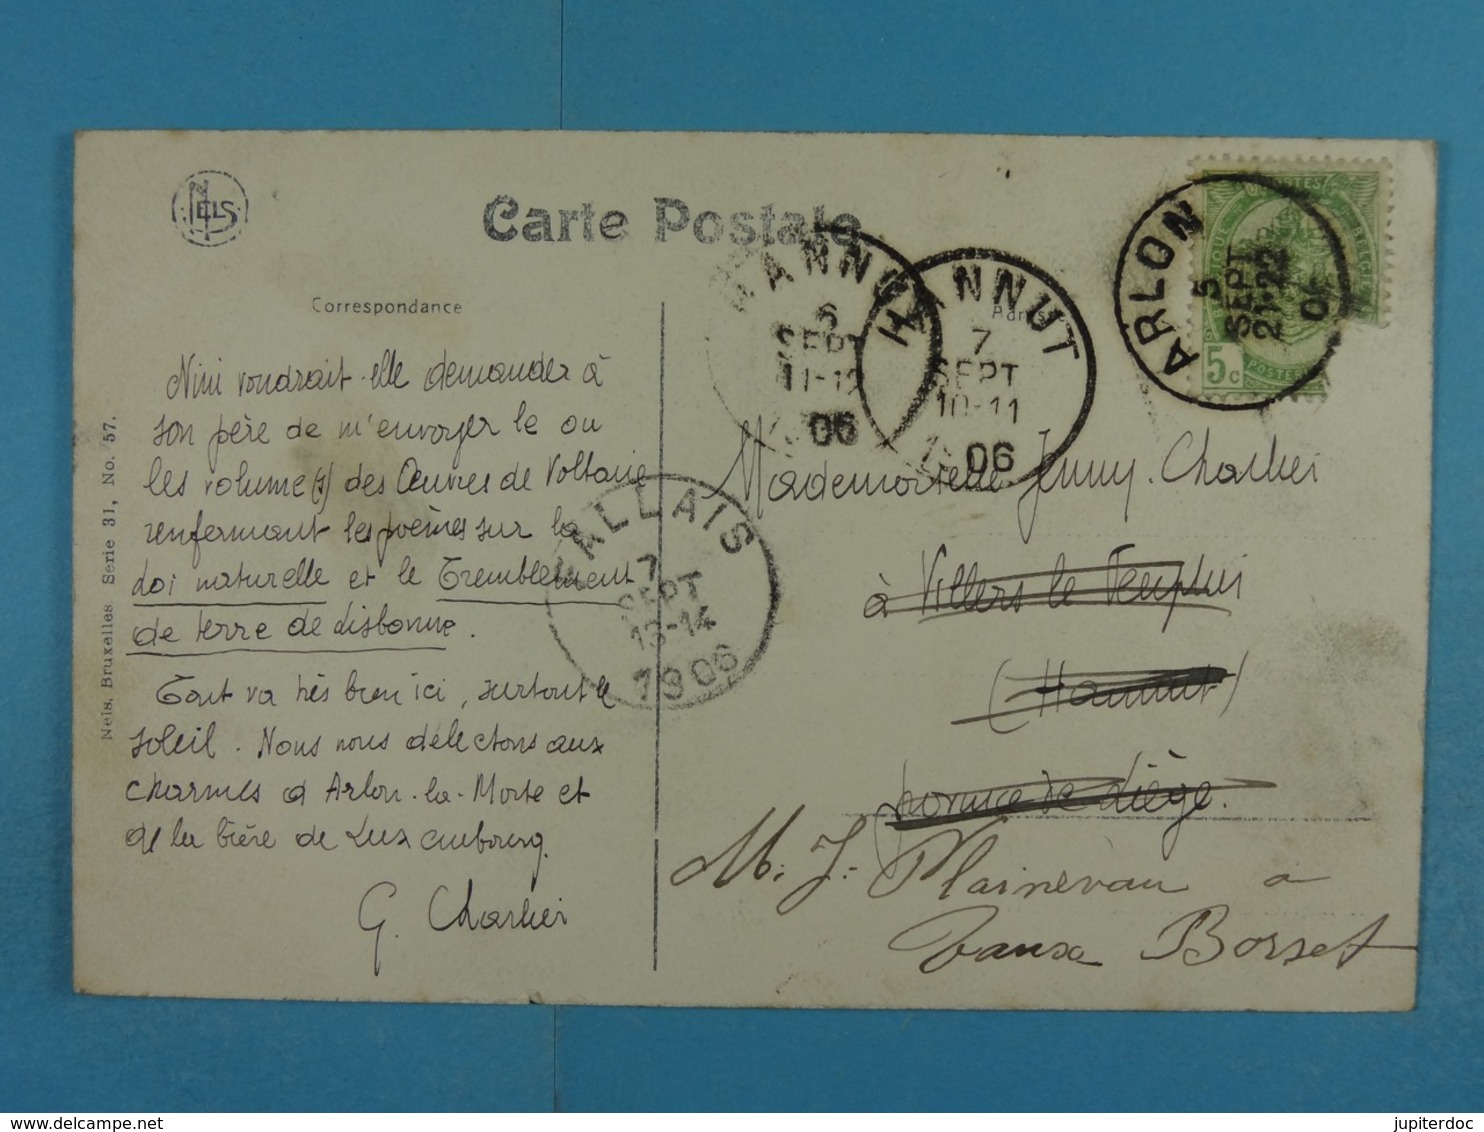 NELS
Carte Postale
Correspondance
Nini voudrait-elle demander à
son père de m'envoyer le ou
les volume(s) des Œuvres de Voltaire
renfermant les poèmes sur la
Loi naturelle et le Tremblement
de terre de Lisbonne.
Tout va très bien ici, surtout le
soleil. Nous nous délectons aux
charmes d'Arlon-la-Morte et
de la bière de Luxembourg.
G. Charlier
Nels, Bruxelles. Serie 31, No. 57.
HANNUT
6
SEPT
11-12
06
HANNUT
7
SEPT
10-11
06
ARLON
5
SEPT
21-22
06
5 c
FALLAIS
7
SEPT
13-14
1906
Mademoiselle Jenny Charlier
à Villers le Templier
(Hannut)
province de Liège.
M. J. à
Vaux Borset
jupiterdoc